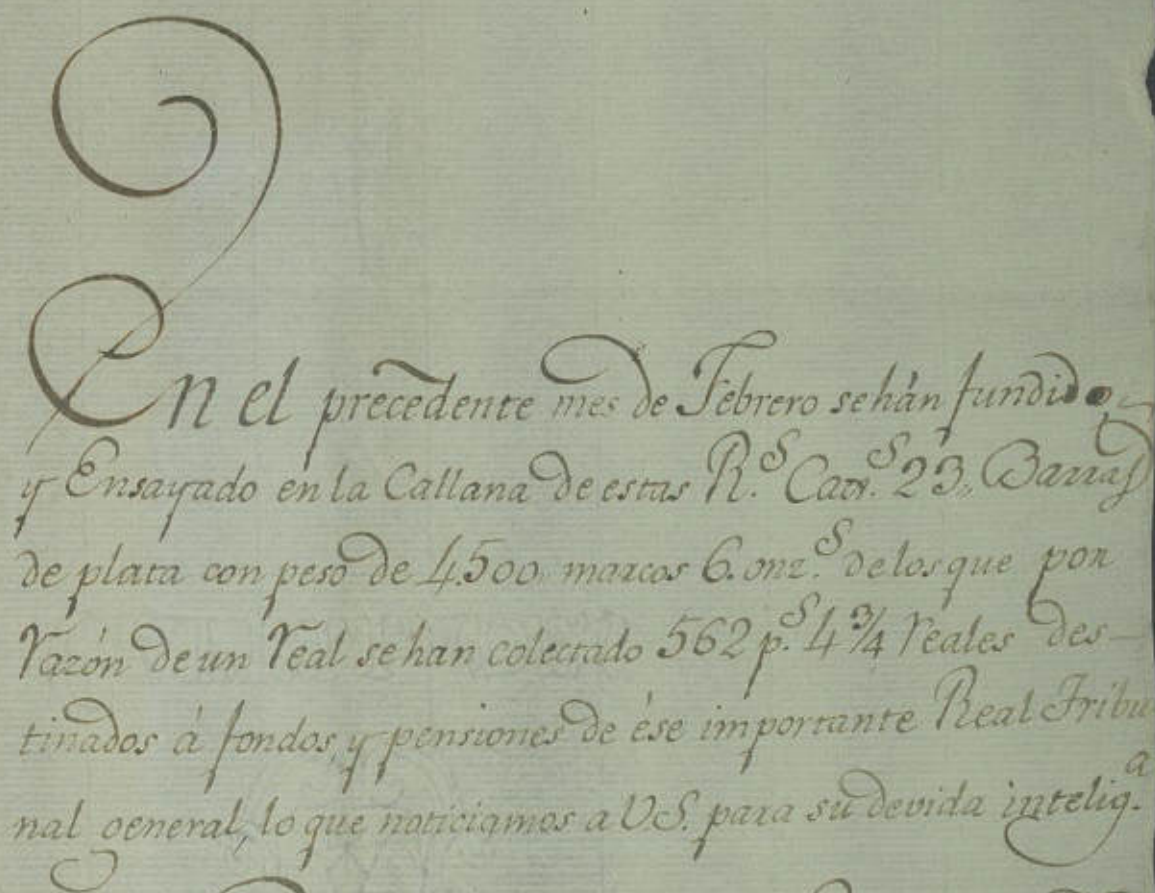 En el precedente mes de Febrero se hán fundido,
y Ensayado en la Callana de estas R.s Cax.s 23,, Barras
de plata con peso de 4.500,, marcos 6. onz.s de los que por
razón de un real se han colectado 562 p.s 4 3/4 reales des-
tinados á fondos, y pensiones de ése importante Real Tribu
nal general, lo que noticiamos a V.S. para su devida intelig.a